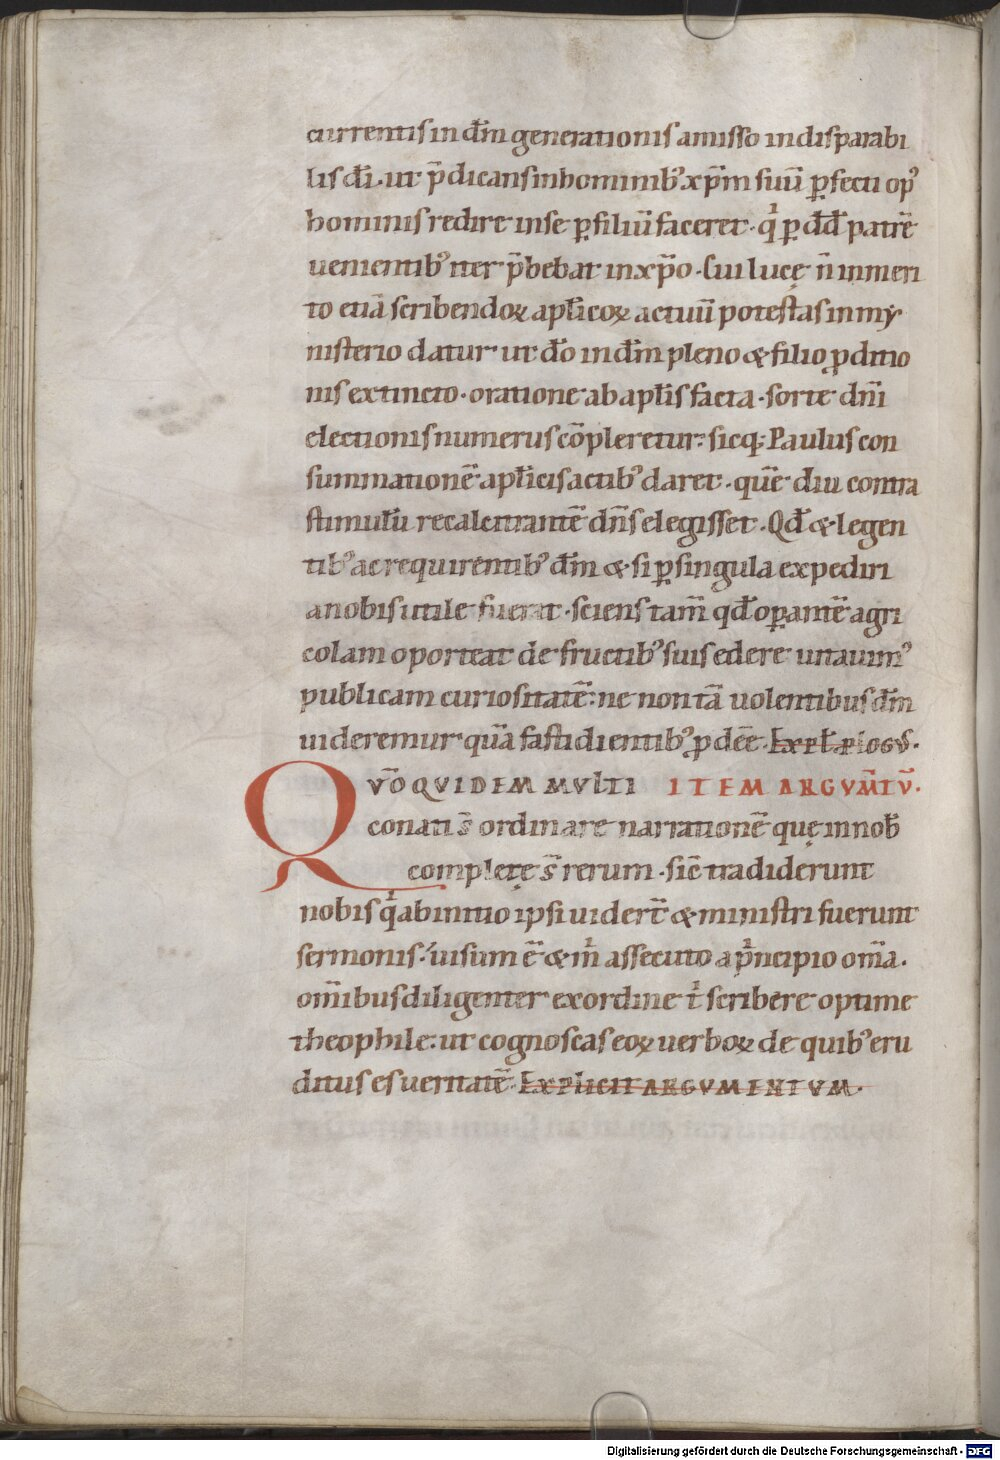 currentis in dm̄ generationis amisso indisparabi
lis dī. ut p̄dicans in hominib; xp̄m suū ꝑfecti op;
hominis redire in se ꝑ filiū faceret. qͥ ꝑ dd̄ patrē
uenientib; iter p̄bebat in xp̄o. Cui lucę n̄ inmeri
to etiā scribendoꝝ apl̄icoꝝ actuū potestas in my
nisterio datur ut dō in dm̄ pleno & filio ꝓditio
nis extincto. oratione ab apl̄is facta. sorte dn̄i
electionis numerus cōpleretur: sicq; Paulus con
summationē apl̄icis actib; daret. quē diu contra
stimulū recalcitrantē dn̄s elegisset. Qd̄ & legen
tib; ac requirentib; dm̄ & si ꝑ singula expediri
a nobis utile fuerat. sciens tam̄ qd̄ oꝑantē agri
colam oporteat de fructib; suis edere uitauim;
publicam curiositatē: ne non tā uolentibus dm̄
uideremur quā fastidientib; ꝓdēe. Expl̄ ꝓlogvs.
QVŌ QVIDEM MVLTI ITEM ARGVM̄TV̄.
conati s̄ ordinare narrationē quę in nob̄
completę s̄ rerum. sic̄ tradiderunt
nobis qͥ ab initio ipsi uidert̄ & ministri fuerunt
sermonis. uisum ē & mͥ assecuto a pͥncipio om̄a.
om̄ibus diligenter ex ordine tͥ scribere optime
theophile: ut cognoscas eoꝝ uerboꝝ de quib; eru
ditus es ueritatē. Explicit ARGVMENTVM.
Digitalisierung gefördert durch die Deutsche Forschungsgemeinschaft - DFG